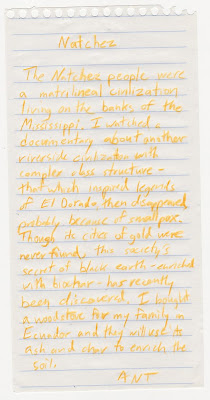 Natchez
The Natchez people were
a matrilineal civilization
living on the banks of the
Mississippi. I watched a
documentary about another
riverside civilization with
complex class structure -
that which inspired legends
of El Dorado, then disappeared
probably because of smallpox.
Though its cities of gold were
never found, this society's
secret of black earth - enriched
with biochar - has recently
been discovered. I bought
a woodstove for my family in
Ecuador and they will use its
ash and char to enrich the
soil.
ANT